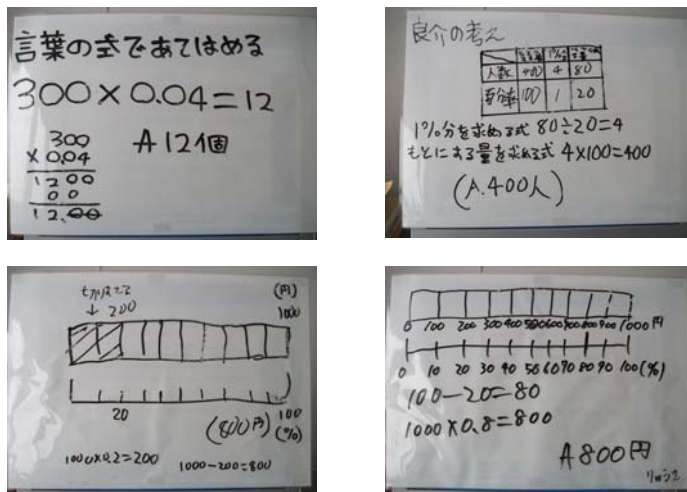 言葉の式であてはめる
300×0.04=12
300
×0.04
1200
00
12.00
A 12個
良介の考え
人数 400 4 80
百分率 100 1 20
1%分を求める式 80÷20=4
もとにする量を求める式 4×100=400
(A.400人)
200
(円)
1000
20
100
(%)
(800円)
1000×0.2=200
1000-200=800
0 100 200 300 400 500 600 700 800 900 1000円
0 10 20 30 40 50 60 70 80 90 100(%)
100-20=80
1000×0.8=800
A 800円